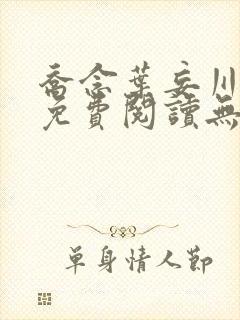 喬念葉妄川
免費閱讀無
單身情人節